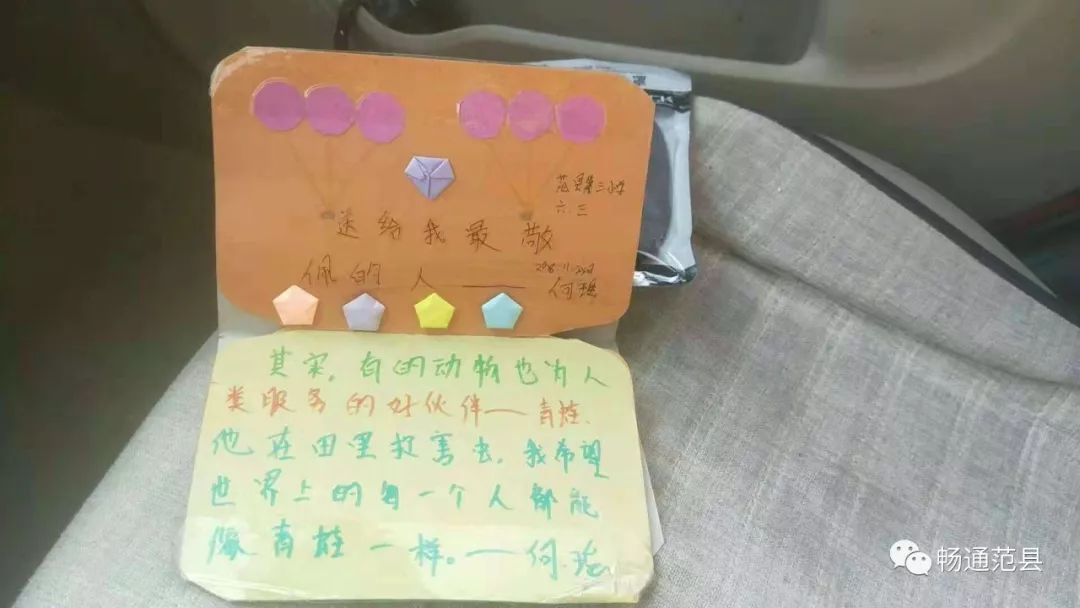 范县第三小学
六.三
送给我最敬
佩的人——
何瑶
其实,有的动物也为人
类服务的好伙伴——青蛙.
他在田里捉害虫,我希望
世界上的每一个人都能
像青蛙一样。——何瑶
畅通范县